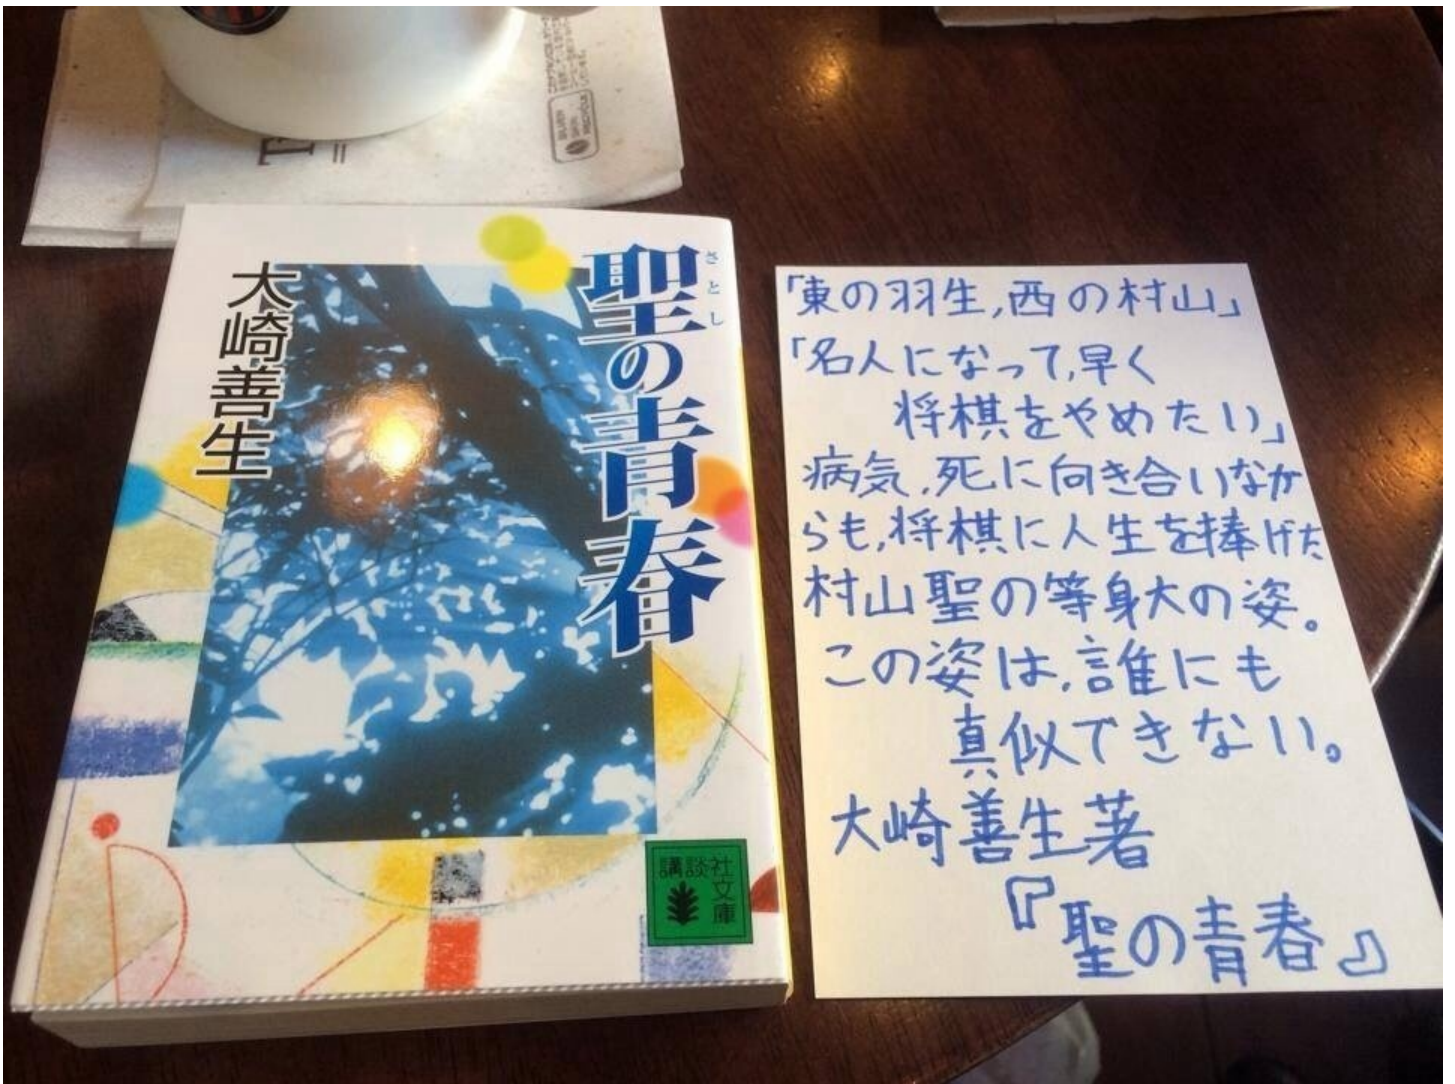 聖の青春
さとし
大崎善生
講談社
文庫
「東の羽生,西の村山」
「名人になって,早く
将棋をやめたい」
病気,死に向き合いなが
らも,将棋に人生を捧げた
村山聖の等身大の姿。
この姿は,誰にも
真似できない。
大崎善生著
『聖の青春』